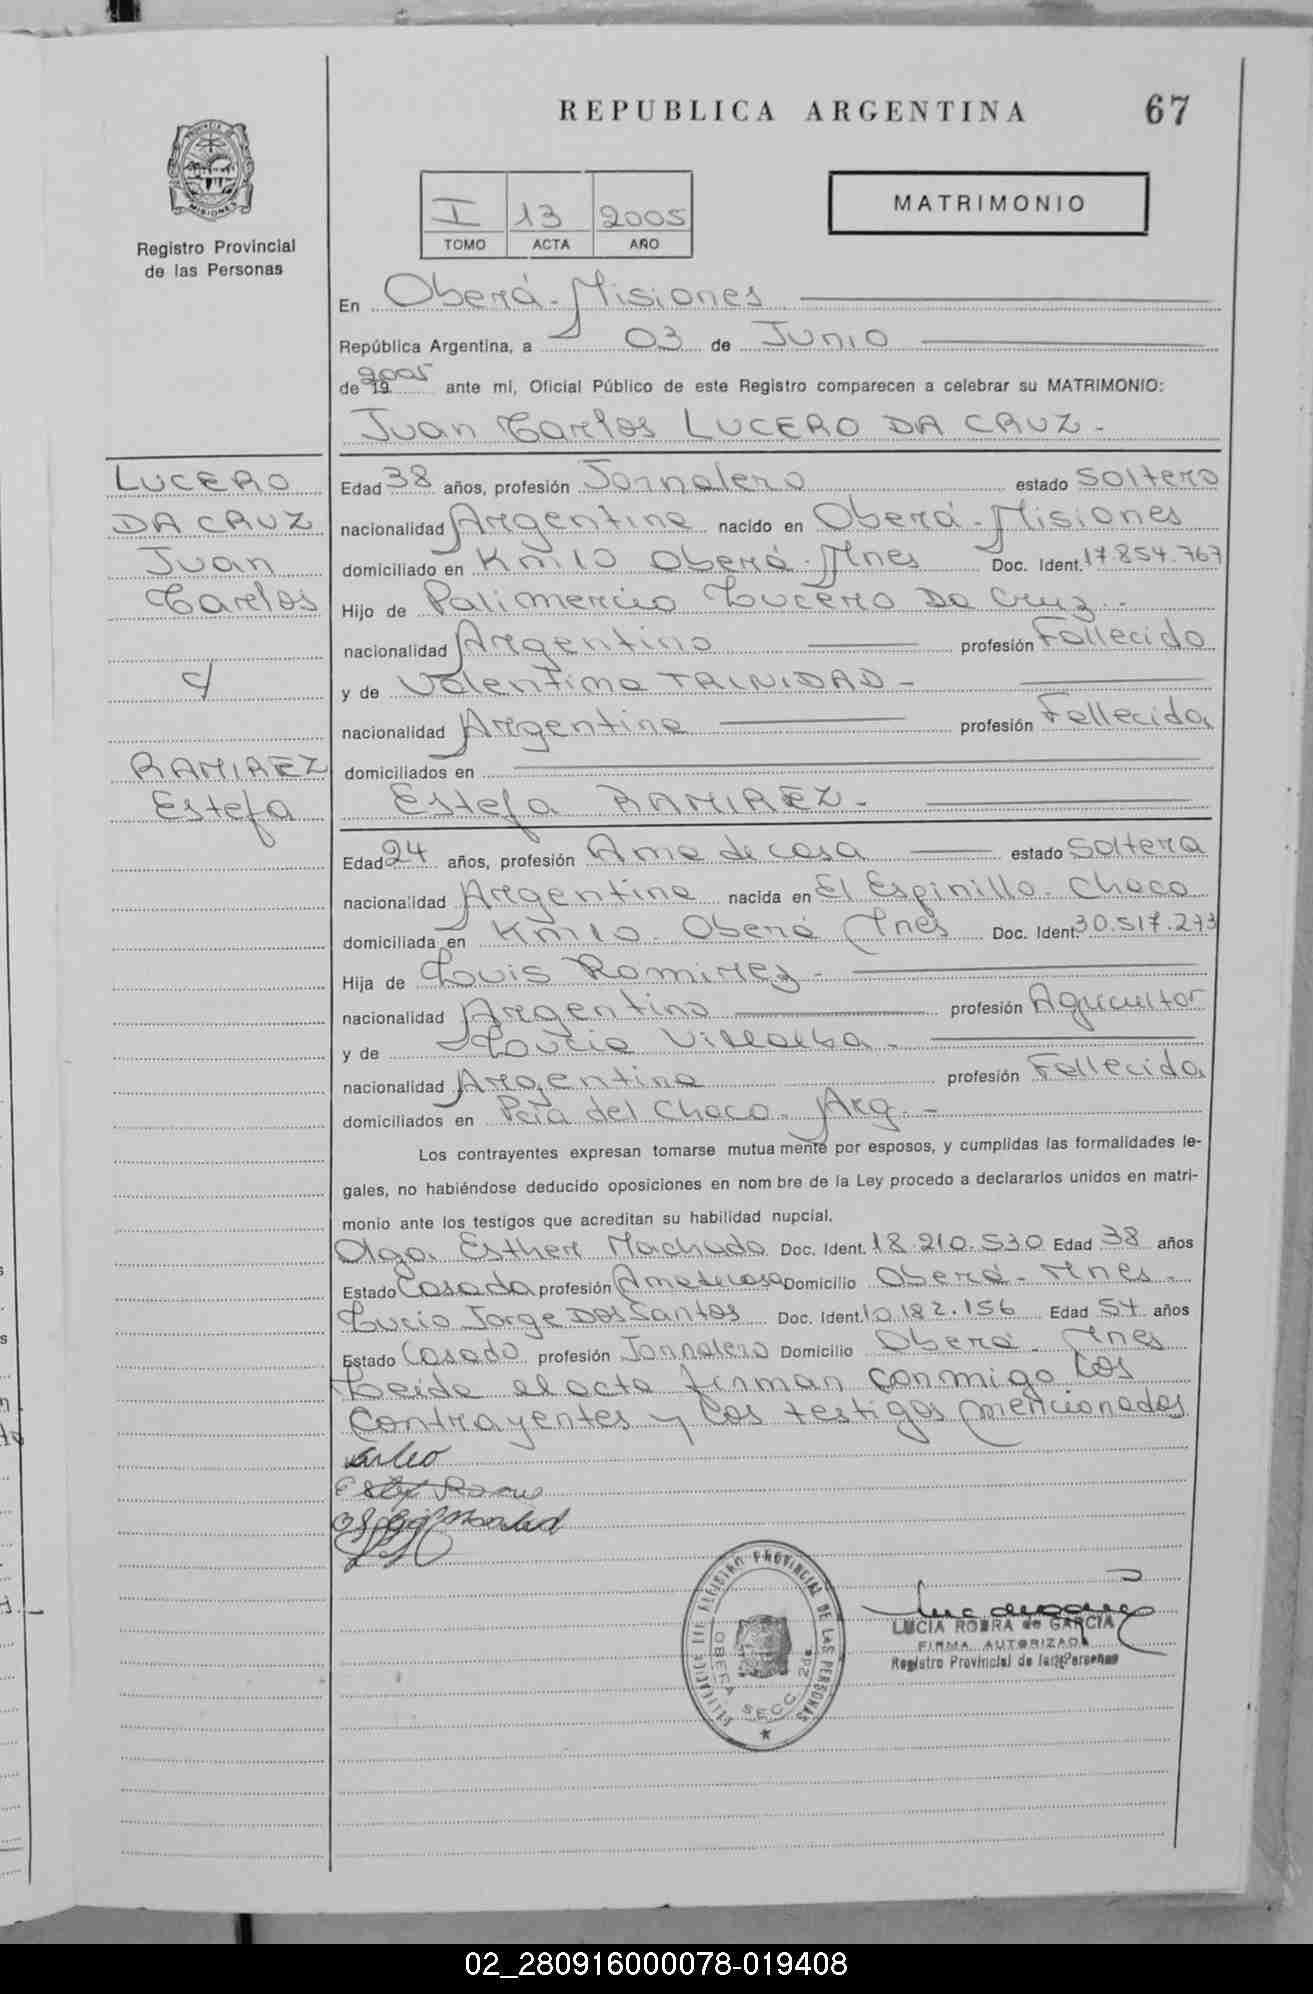 REPUBLICA ARGENTINA 67
PROVINCIA DE
MISIONES
Registro Provincial
de las Personas
I 13 2005
TOMO ACTA AÑO
MATRIMONIO
En Oberá - Misiones
República Argentina, a 03 de Junio
de 19 2005 ante mí, Oficial Público de este Registro comparecen a celebrar su MATRIMONIO:
Juan Carlos LUCERO DA CRUZ -
LUCERO
DA CRUZ
Juan
Carlos
c/
RAMIREZ
Estefa
Edad 38 años, profesión Jornalero estado Soltero
nacionalidad Argentina nacido en Oberá - Misiones
domiciliado en Km 10 Oberá - Mnes Doc. Ident. 17.854.767
Hijo de Palimercio Lucero Da Cruz -
nacionalidad Argentino profesión Fallecido
y de Valentima TRINIDAD -
nacionalidad Argentina profesión Fallecida
domiciliados en
Estefa RAMIREZ -
Edad 24 años, profesión Ama de casa estado Soltera
nacionalidad Argentina nacida en El Espinillo - Chaco
domiciliada en Km 10 - Oberá Mnes Doc. Ident. 30.517.273
Hija de Luis Ramirez -
nacionalidad Argentino profesión Agricultor
y de Lucia Villalba -
nacionalidad Argentina profesión Fallecida
domiciliados en Pcia del Chaco - Arg. -
Los contrayentes expresan tomarse mutua mente por esposos, y cumplidas las formalidades le-
gales, no habiéndose deducido oposiciones en nom bre de la Ley procedo a declararlos unidos en matri-
monio ante los testigos que acreditan su habilidad nupcial.
Olga Esther Machado Doc. Ident. 18.210.530 Edad 38 años
Estado Casada profesión Ama de casa Domicilio Oberá - Mnes -
Lucio Jorge Dos Santos Doc. Ident. 10.182.156 Edad 54 años
Estado Casado profesión Jornalero Domicilio Oberá - Mnes
Leida el acta firman conmigo los
contrayentes y los testigos mencionados
DEL REGISTRO PROVINCIAL DE LAS PERSONAS
OBERA SECC. 2da.
LUCIA ROBRA de GARCIA
FIRMA AUTORIZADA
Registro Provincial de las Personas
02_280916000078-019408